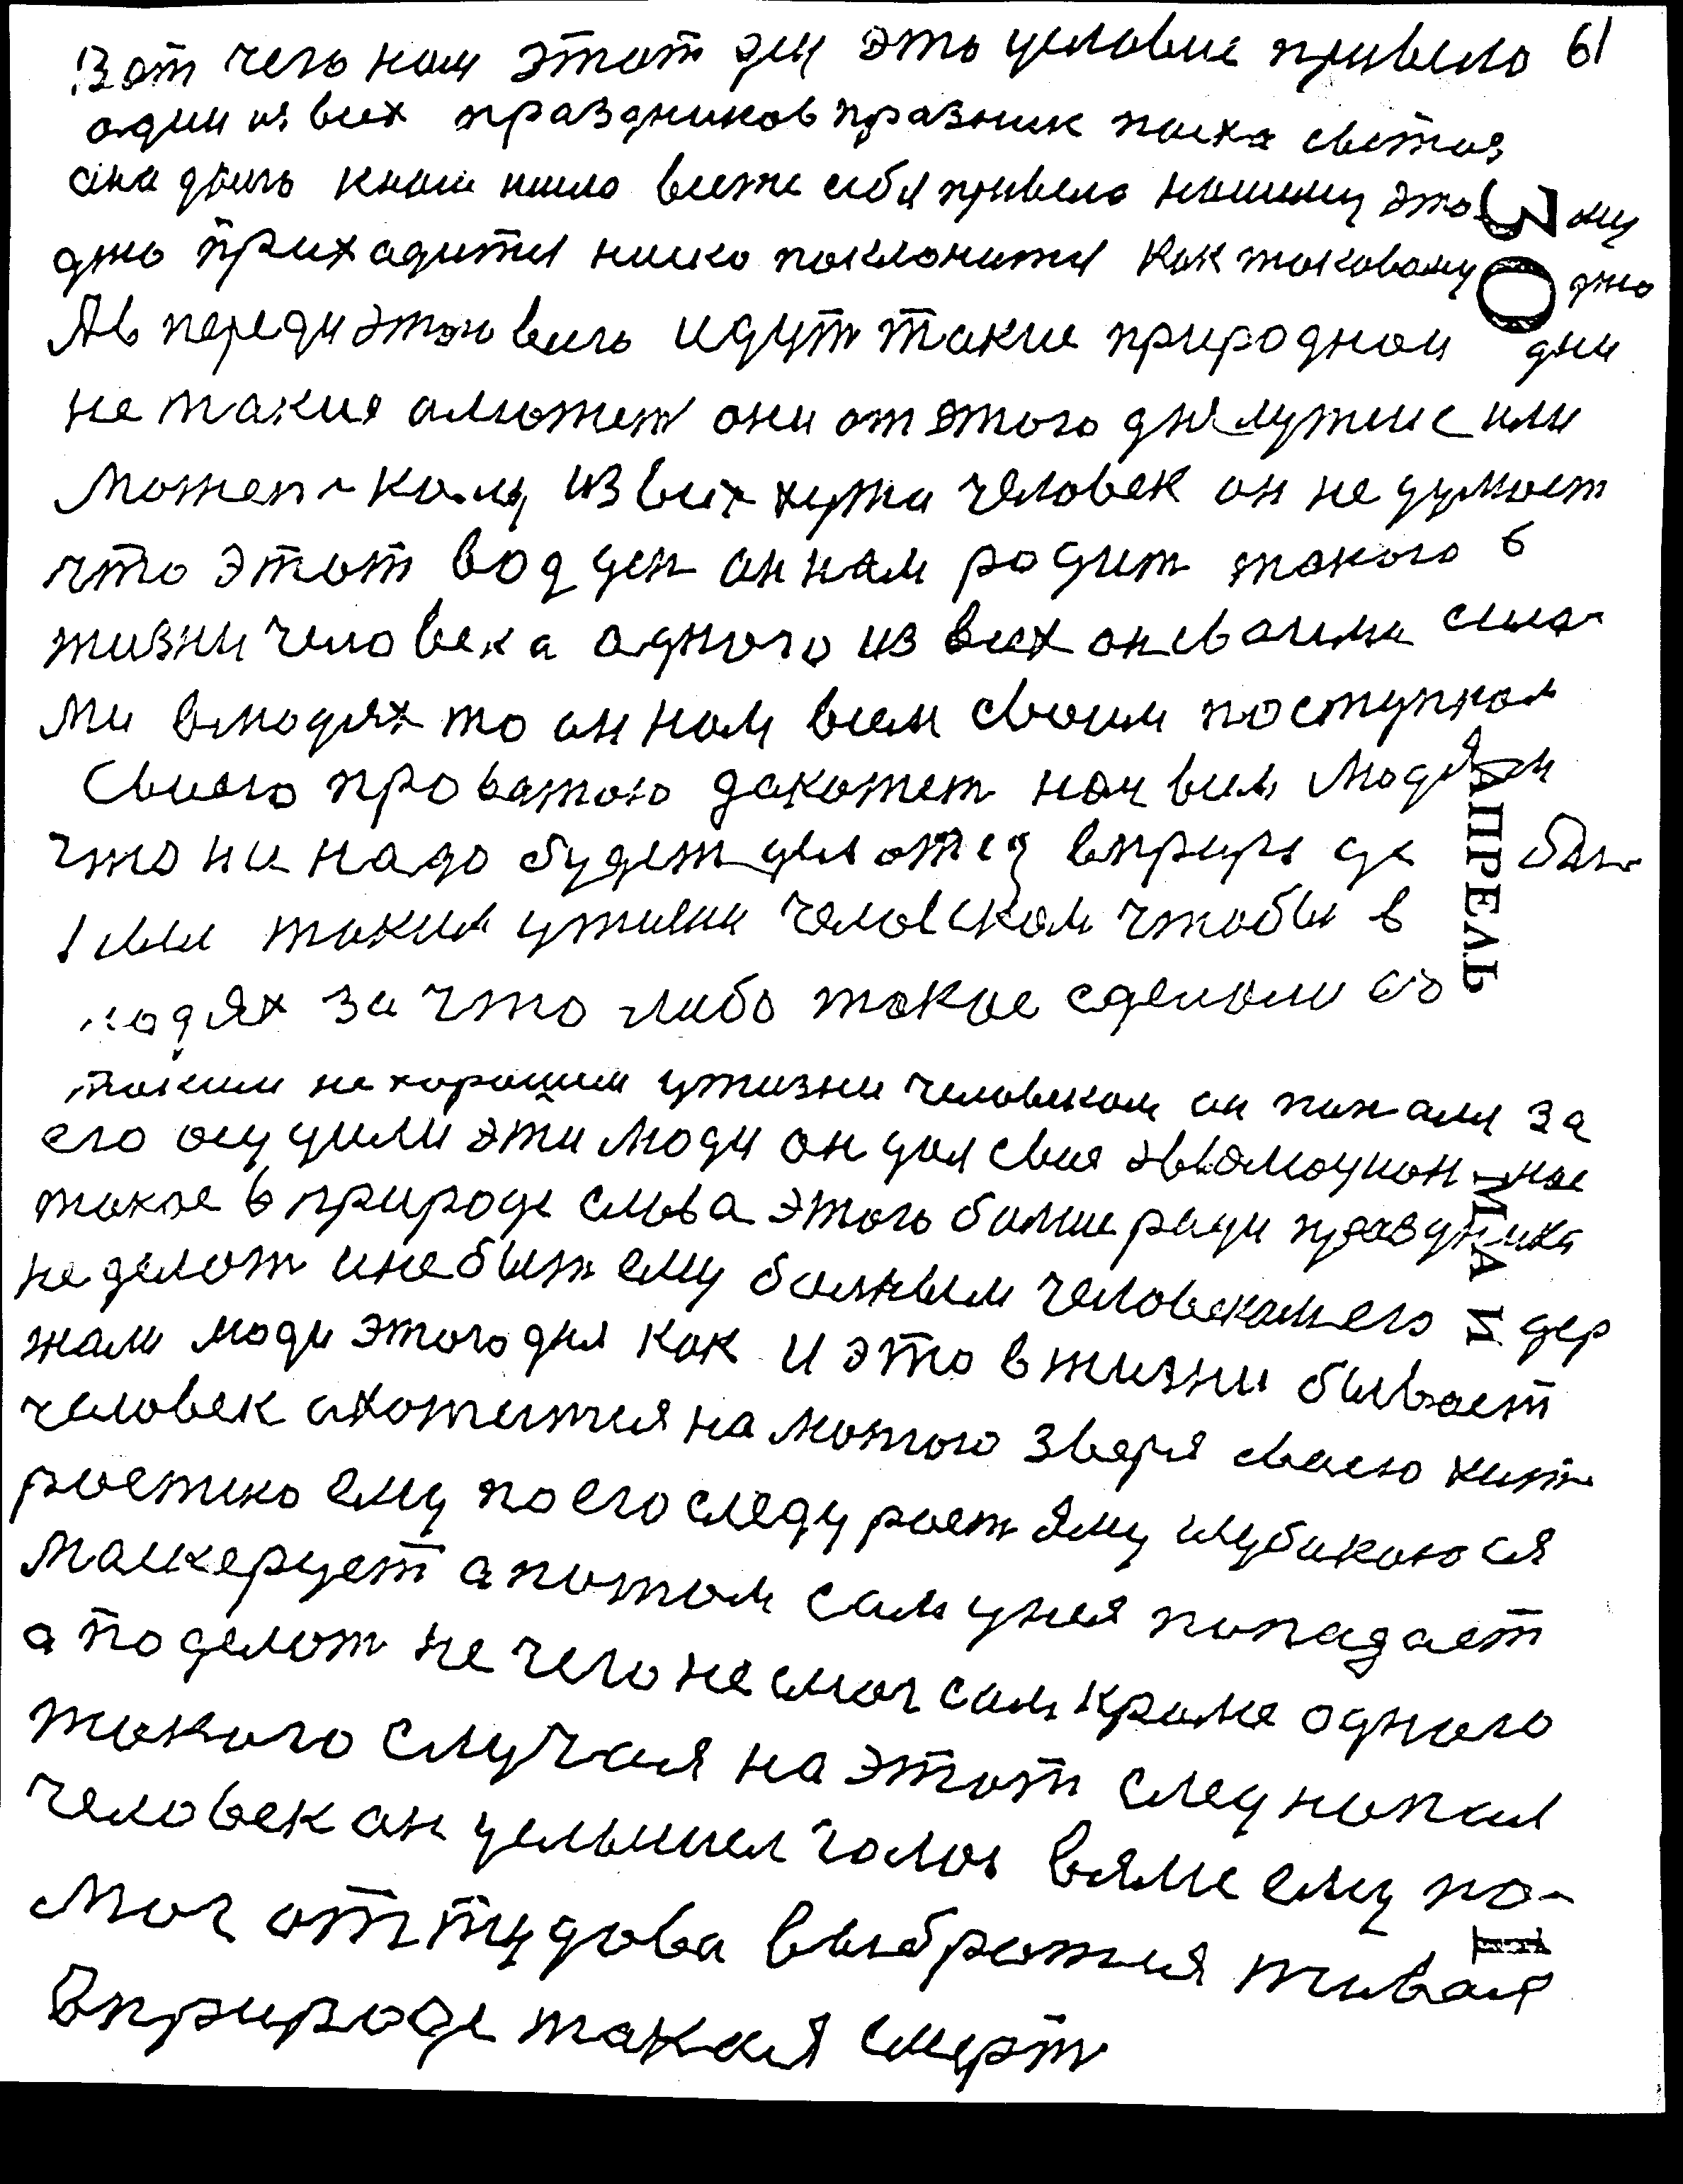 Вот чего нам этот ден это условие привело 61
один из всех праздников празник пасха светоя
она дваго к нам нашло всеже себя привело нашему этому
дню прихадится ниско поклонится как таковому дню
А в переди этого всего идут такие природнои дни
не такия а может они от этого дня лутшие или
может и кому из всех хужи человек он не думает
что этот вод ден он нам родит такого в
жизни человека одного из всех он своими сила-
ми в людях то он нам всем своим поступком
своею проватою докажет нам всем людям
что ни надо будет делатся в природе де быт
такил у жизни человеком чтобы в
людях за что либо такое сделали со
таким не хорошим у жизни человеком он попался за
его осудили эти люди он дал свае эвалюционное
такое в природе слова этого больше ради праздника
не делат и не быт ему больным человеком его дер
жали люди этого дня как и это в жизни бывает
человек ахотится на лютого зверя своею хит-
ростию ему по его следу роет яму глубокою ся
маскерует а потом сам у нея попадает
а поделат не чего не смог сам кроме одного
такого случая на этот след напал
человек он услышел голос в яме ему по-
мог от тудова выбратия живая
в природе такая смерт
30
АПРЕЛЬ
1 МАЯ